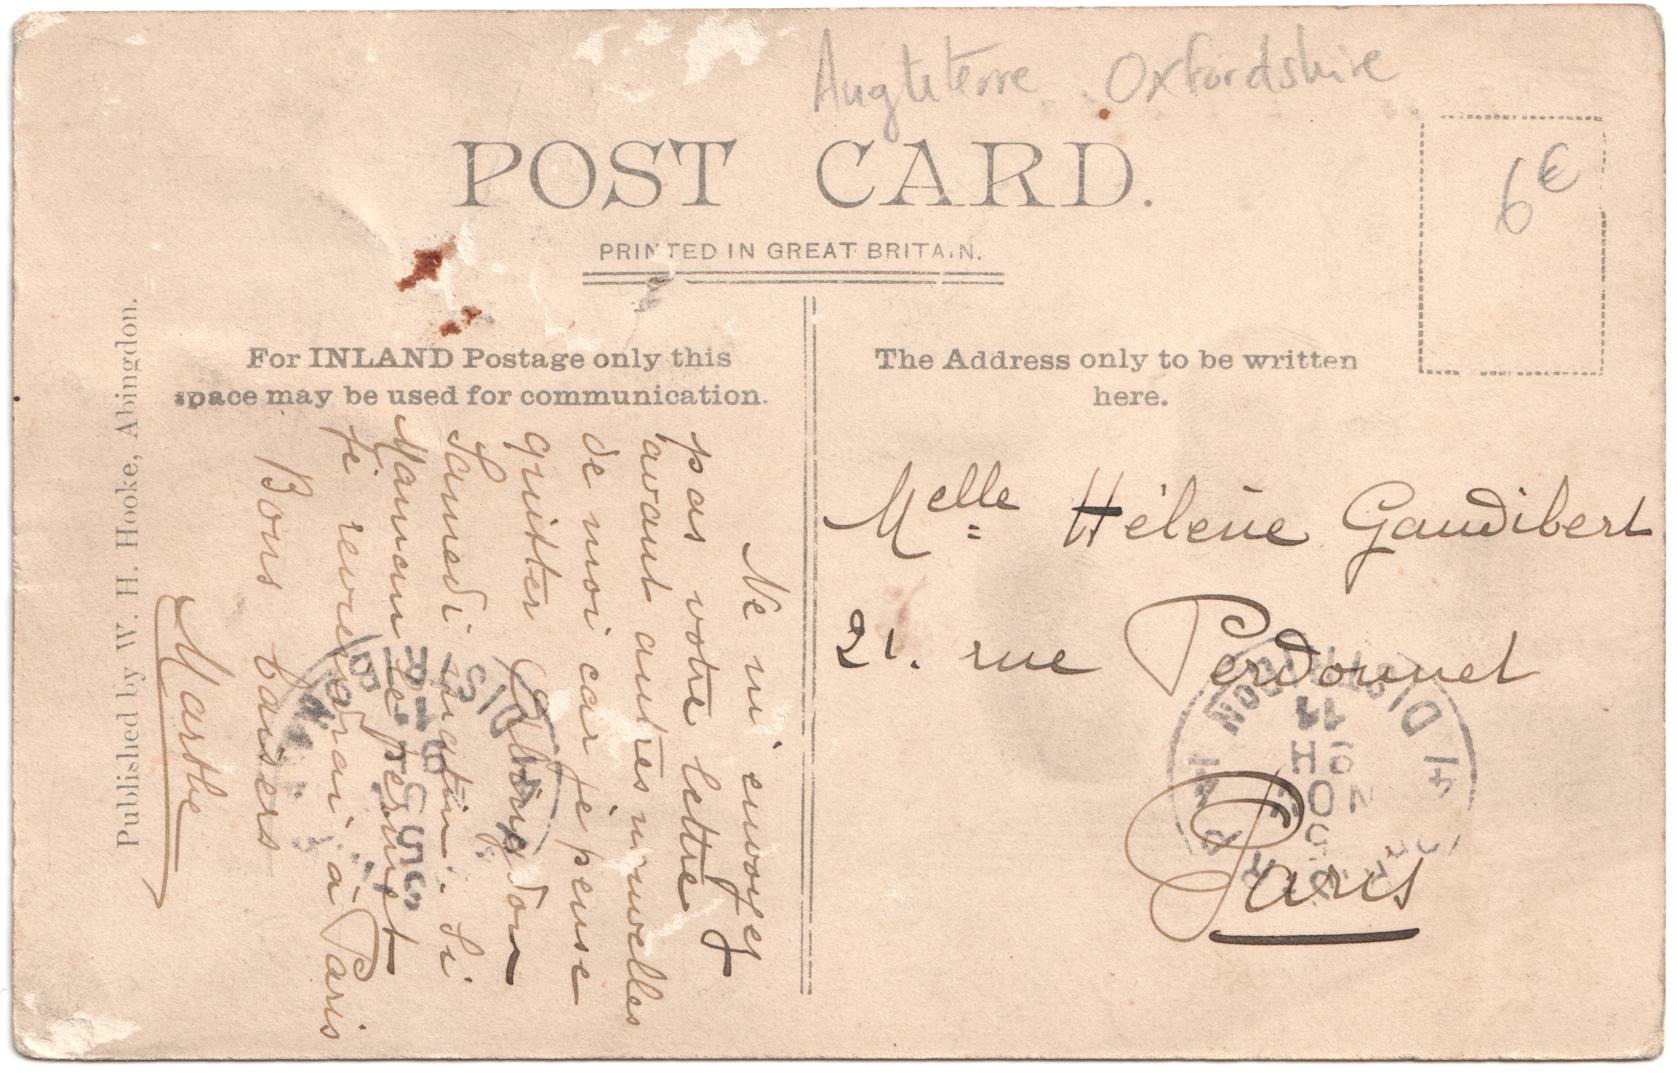 Angleterre Oxfordshire
POST CARD.
6€
PRINTED IN GREAT BRITAIN.
For INLAND Postage only this
space may be used for communication.
The Address only to be written
here.
Ne m'envoyez
pas votre lettre
avant autres nouvelles
de moi car je pense
quitter Abingdon
Samedi matin. Si
Maman le permet
je reviendrai à Paris
Bons baisers
Marthe
Melle Hélène Gaudibert
21. rue Perdonnet
Paris
Published by W. H. Hooke, Abingdon.
DISTRIBUTION
9H
DISTR